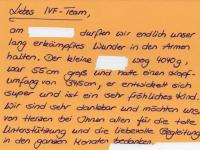 Liebes IVF-Team,
am durften wir endlich unser
lang erkämpftes Wunder in den Armen
halten. Der kleine wog 4090g,
war 55cm groß und hatte einen Kopf-
umfang von cm, er entwickelt sich
super und ist ein sehr fröhliches Kind.
Wir sind sehr dankbar und möchten uns
von Herzen bei Ihnen allen für die tolle
Unterstützung und die liebevolle Begleitung
in den ganzen Monaten bedanken.